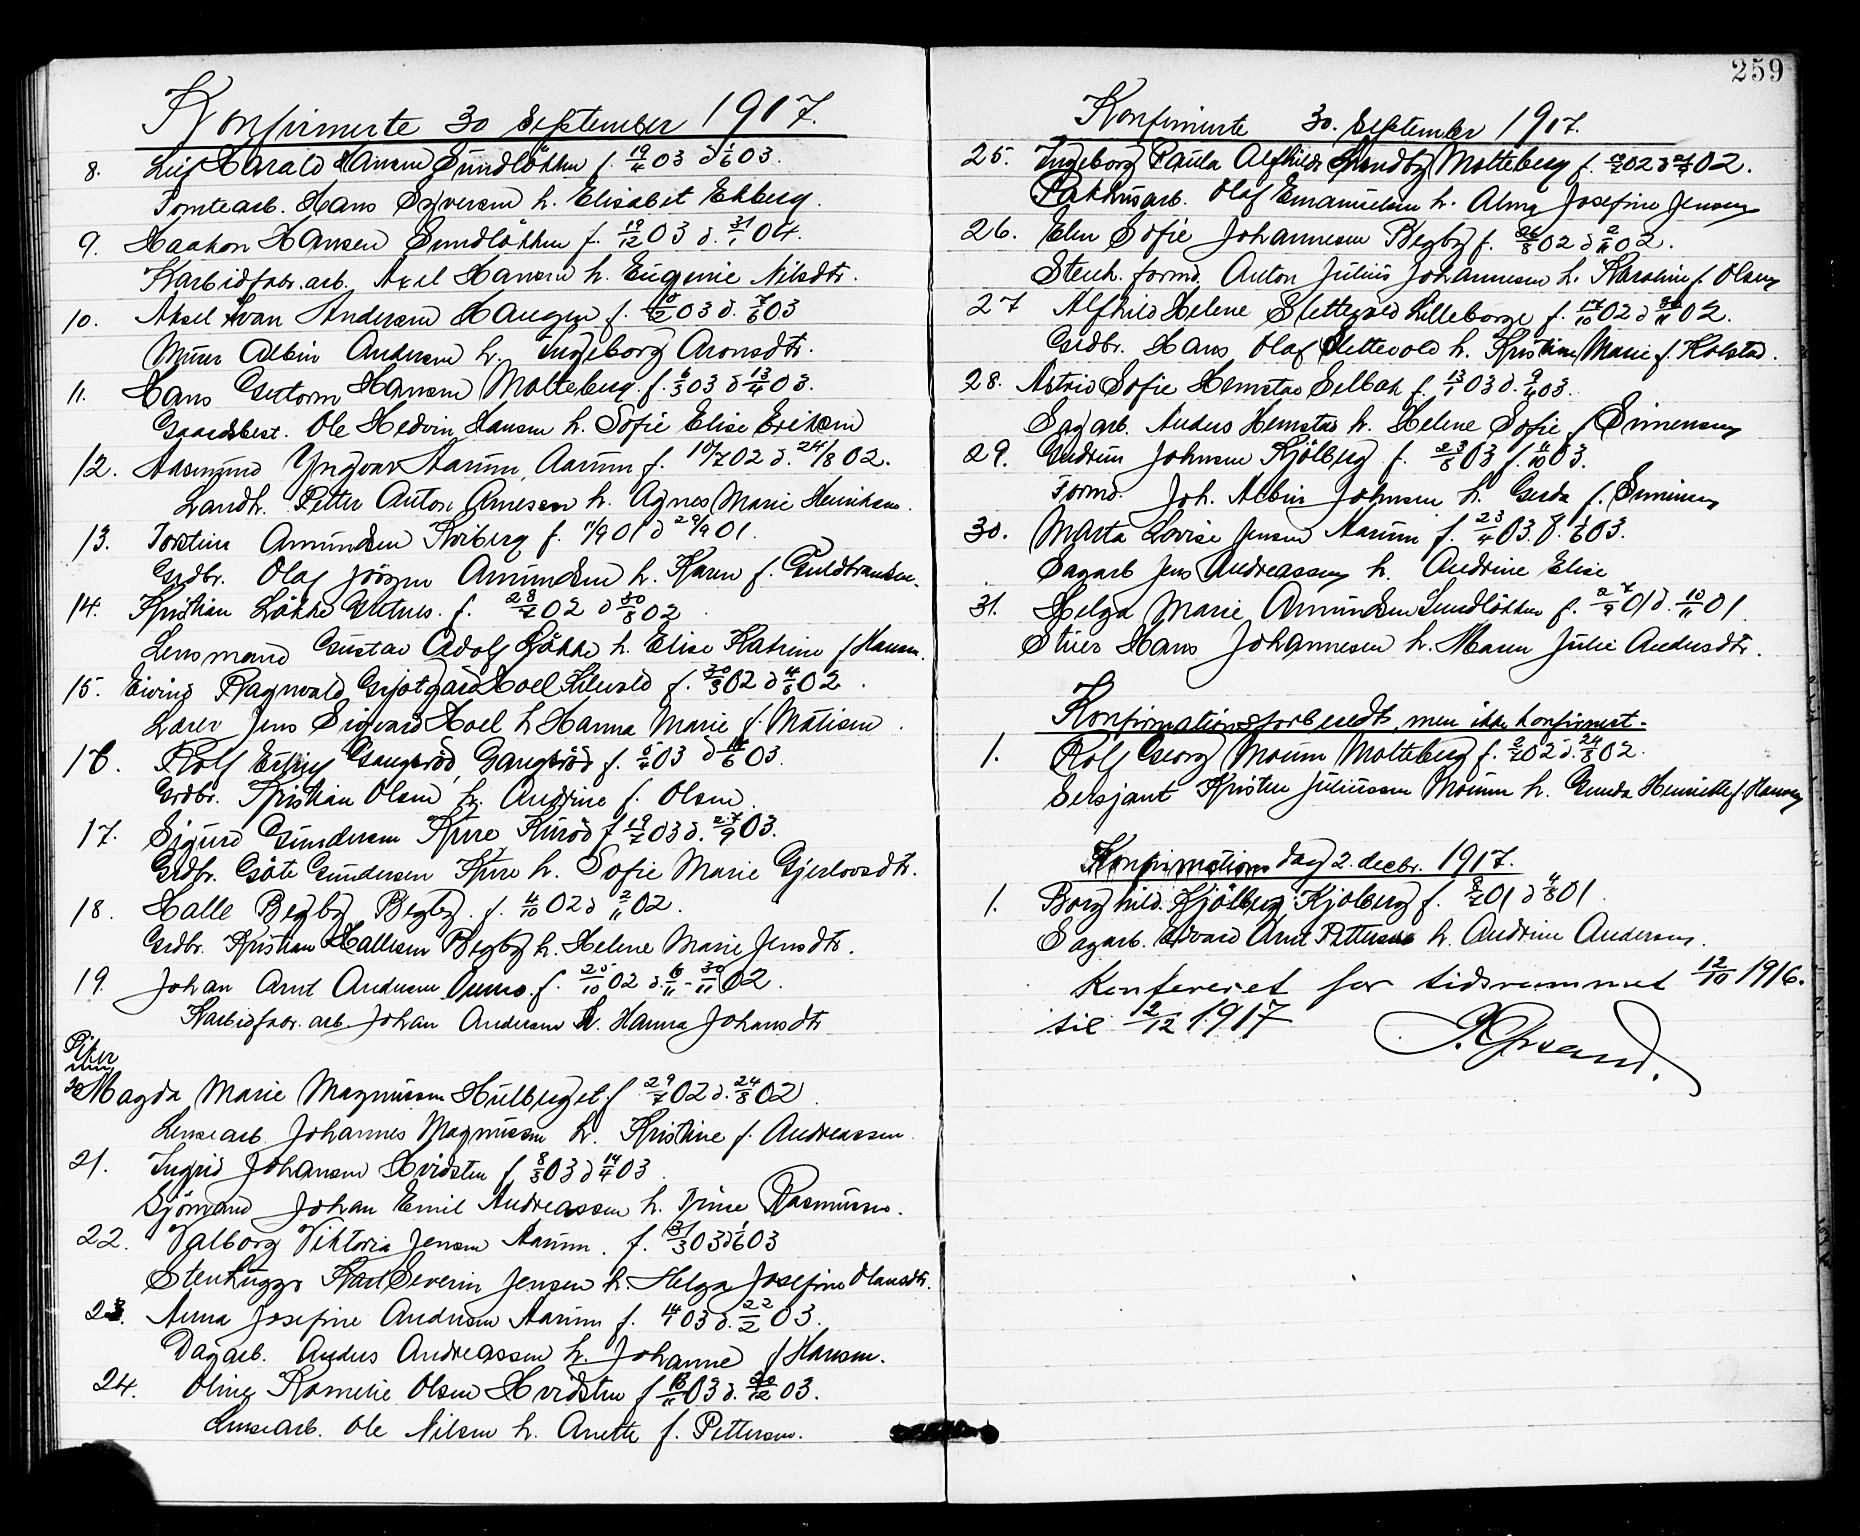 Konfirmerte 30 September 1917.
8. Leif Harald Hansen Sundlökken f. 19/4 03 d 1/6 03.
Tomtearb. Hans Syversen h. Elisabet Ekberg.
9. Haakon Hansen Sundlökken f. 19/12 03 d. 31/1 04.
Karbidfabr. arb. Axel Hansen h. Eugenie Nilsdtr.
10. Aksel Ivan Andersen Haugen f. 03 d. 7/6 03
Murer Albin Andersen h. Ingeborg Aronsdtr.
11. Hans Guttorm Hansen Molteberg f. 6/3 03 d 13/4 03.
Gaardsbest. Ole Hedvin Hansen h. Sofie Elise Eriksen
12. Aasmund Yngvar Aarum, Aarum f. 10/7 02 d. 24/8 02.
Landh. Petter Anton Arnesen h. Agnes Marie Henriksen.
13. Torstein Amundsen Kviberg f. 11/9 01 d 29/9 01.
Grdbr. Olaf Jörgen Amundsen h. Karen f. Guldbrandsen.
14. Kristian Løkke f. 28/7 02 d 30/8 02
Lensmand Gustav Adolf Løkke h. Elise Katrine f Hansen.
15. Eivind Ragnvald Grjotgard Hoel Lilevold f. 30/3 02 d 4/6 02.
Lærer Jens Sigvard Hoel h Hanna Marie f. Matisen.
16. Rolf Gangsröd, Gangsröd f. 5/4 03 d 6 03.
Grdbr. Kristian Olsen h. Andrine f. Olsen.
17. Sigurd Gundersen Kure Kuröd f 19/7 03 d. 27/9 03.
Grdbr. Göte Gundersen Kure h. Sofie Marie Gjerlovsdtr.
18. Halle Begby Begby. f. 4/10 02 d 2/11 02.
Grdbr. Kristian Hallesen Begby h. Helene Marie Jensdtr.
19. Johan Arnt Andersen f. 25/10 02 d. 30/11 02.
Karbidfabr. arb Johan Andersen h. Hanna Johansdtr
Piker
20 Magda Marie Magnussen Hulberget f 29/7 02 d. 24/8 02.
Lensearb. Johannes Magnussen h. Kristine f. Andreassen.
21. Ingrid Johansen Hvidsten f 8/3 03 d 14/4 03
Sjömand Johan Emil Andreassen h. Trine Rasmussen.
22. Valborg Viktoria Jensen Aarum. f. 31/3 03 d 1/6 03
Stenhugger Karl Severin Jensen h. Helga Josefine Olausdtr.
23. Anna Josefine Andersen Aarum f. 03 d. 22/2 03.
Dagarb. Anders Andreassen h. Johanne f Hansen.
24. Oline Kornelie Olsen Hvidsten f 03 d. 20/12 03.
Lensearb. Ole Nilsen h. Anette f. Pettersen.
259
Konfirmerte 30. September 1917.
25. Ingeborg Paula Alfhild Molteberg f. 02 d 02.
Pakhusarb. Olaf Emanuelsen h. Alma Josefine Jensen
26. Elen Sofie Johannesen Begby f. 26/8 02 d 2/11 02.
Stenh. formd. Anton Julius Johannesen h. Karoline f. Olsen
27 Alfhild Helene Slettevold Lilleborge f. 17/10 02 d 30/11 02.
Grdbr. Hans Olaf Slettevold h. Kristine Marie f. Kolstad.
28. Astrid Sofie Hemstad Selbak f. 13/1 03 d. 9/4 03.
Sagarb. Anders Hemstad h. Helene Sofie f Simensen
29. Gudrun Johnsen Kjölberg f. 23/8 03 f. 11/10 03.
Formd. Joh. Albin Johnsen h. Gerda f. Simensen
30. Marta Lovise Jensen Aarum f. 23/4 03. d. 1/6 03.
Sagarb Jens Andreassen h. Andrine Elise
31. Helga Marie Amundsen Sundlökken f. 27/9 01 d. 10/11 01.
Stuer Hans Johannesen h. Maren Julie Andersdtr.
Konfirmationsforberedt, men ikke konfirmert.
1. Rolf Georg Moum Molteberg f. 2/7 02 d. 24/8 02.
Sersjant Kristen Juliussen Moum h. Gunda Henriette f. Hansen
Konfirmationsdag 2. decbr. 1917.
1. Borghild Kjölberg Kjölberg f. 8/7 01 d 4/8 01.
Sagarb. Edvard Arnt Pettersen h. Andrine Andersen.
Konfereret for tidsrummet 12/10 1916.
til 9/12 1917